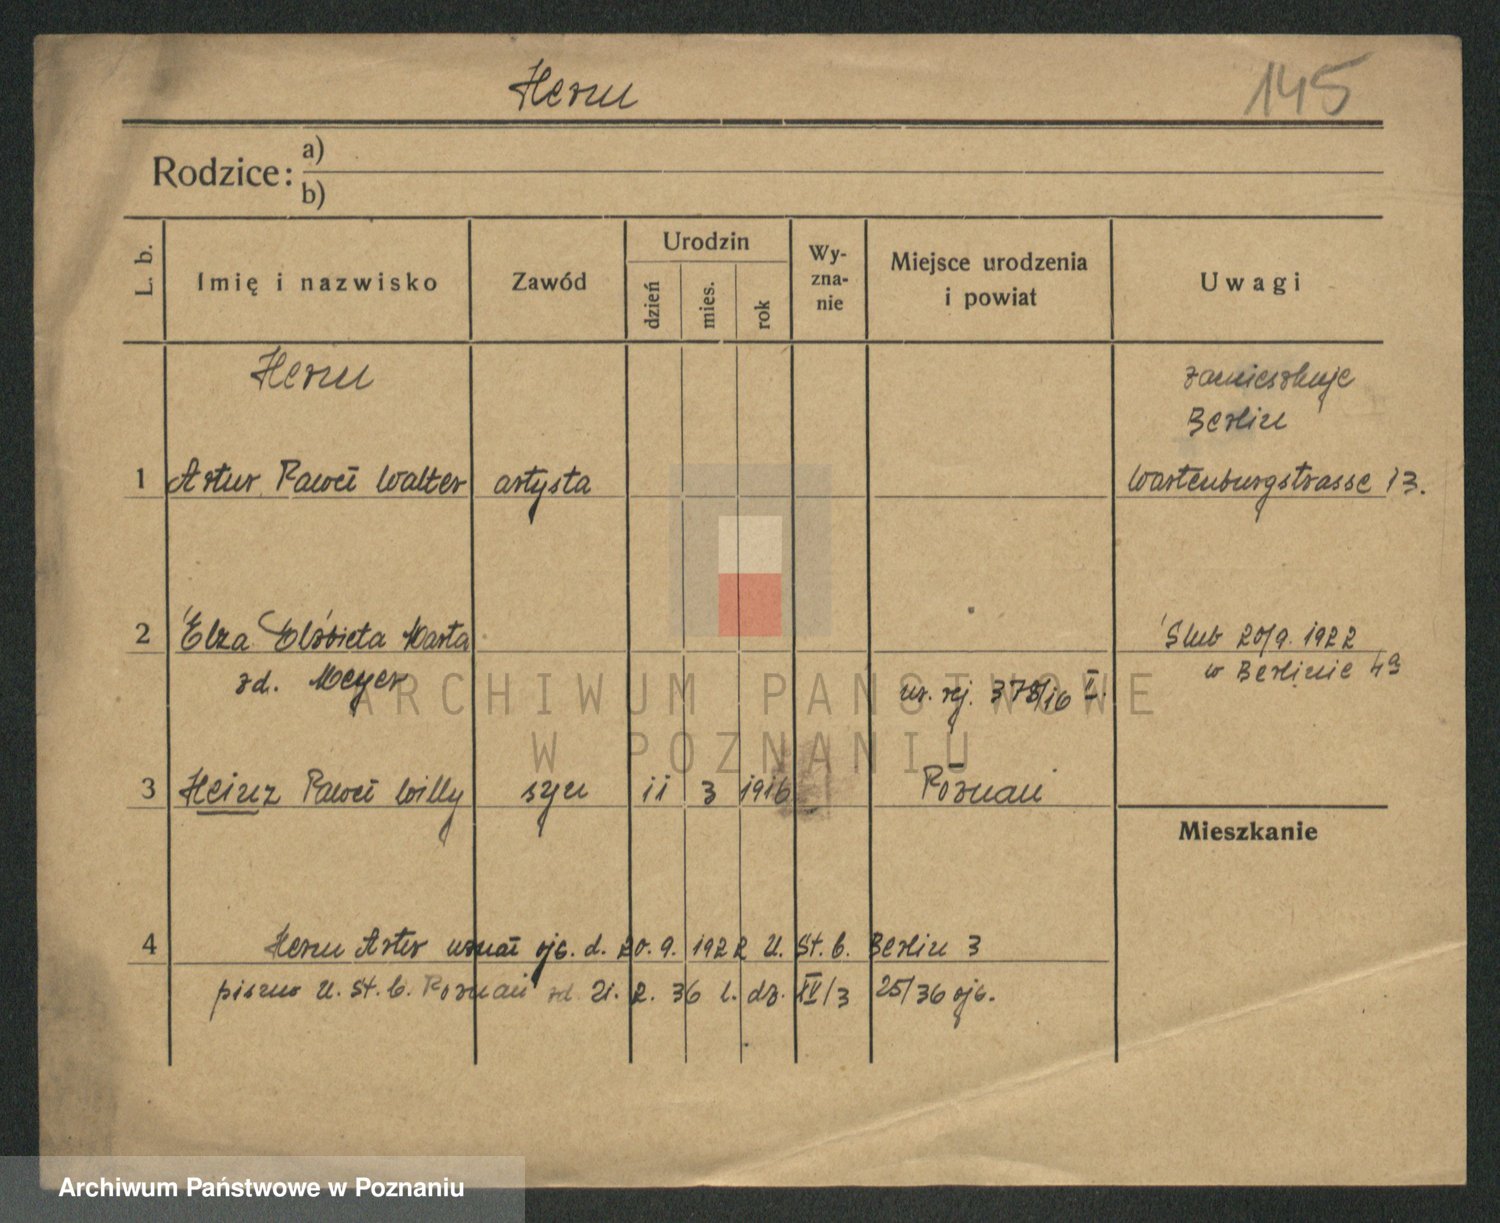 Herm
145
Rodzice: a)
b)
L. b.
Imię i nazwisko
Zawód
Urodzin
dzień
mies.
rok
Wy-
zna-
nie
Miejsce urodzenia
i powiat
Uwagi
Herm
zamieszkuje
Berlin
1 Artur Paweł Walter artysta Wartenburgstrasse 13.
2 Elza Elżbieta Marta Ślub 20/9. 1922
zd. Meyer w Berlinie
nr. rej. 378/16 II.
3 Heinz Paweł Willy syn 11 3 1916 Poznań
Mieszkanie
4 Herm Artur uznał ojc. d. 20. 9. 1922 U. St. C. Berlin 3
pismo U. St. C. Poznań zd. 21. 2. 36 l. dz. IV/3 25/36 ojc.
ARCHIWUM PAŃSTWOWE
W POZNANIU
Archiwum Państwowe w Poznaniu